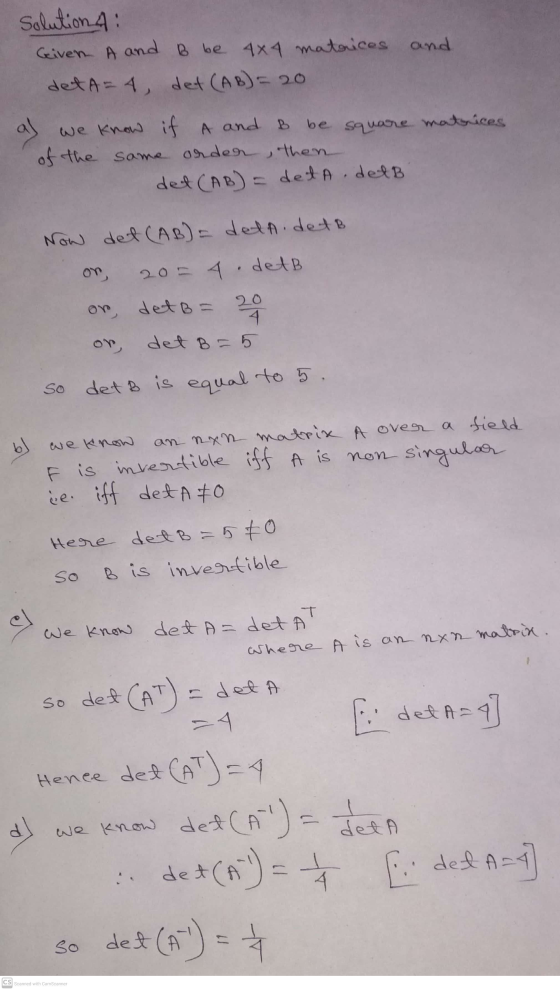 Solution 4:
Given A and B be 4×4 matrices and
det A = 4, det (AB) = 20
a) we know if A and B be square matrices
of the same order, then
det (AB) = det A . det B
Now det (AB) = det A . det B
or, 20 = 4 . det B
or, det B = 20/4
or, det B = 5
so det B is equal to 5.
b) we know an n×n matrix A over a field
F is invertible iff A is non singular
i.e. iff det A ≠ 0
Here det B = 5 ≠ 0
so B is invertible
c) we know det A = det Aᵀ
where A is an n×n matrix.
so det (Aᵀ) = det A
= 4 [∵ det A = 4]
Hence det (Aᵀ) = 4
d) we know det (A⁻¹) = 1/det A
∴ det (A⁻¹) = 1/4 [∵ det A = 4]
so det (A⁻¹) = 1/4
CS Scanned with CamScanner